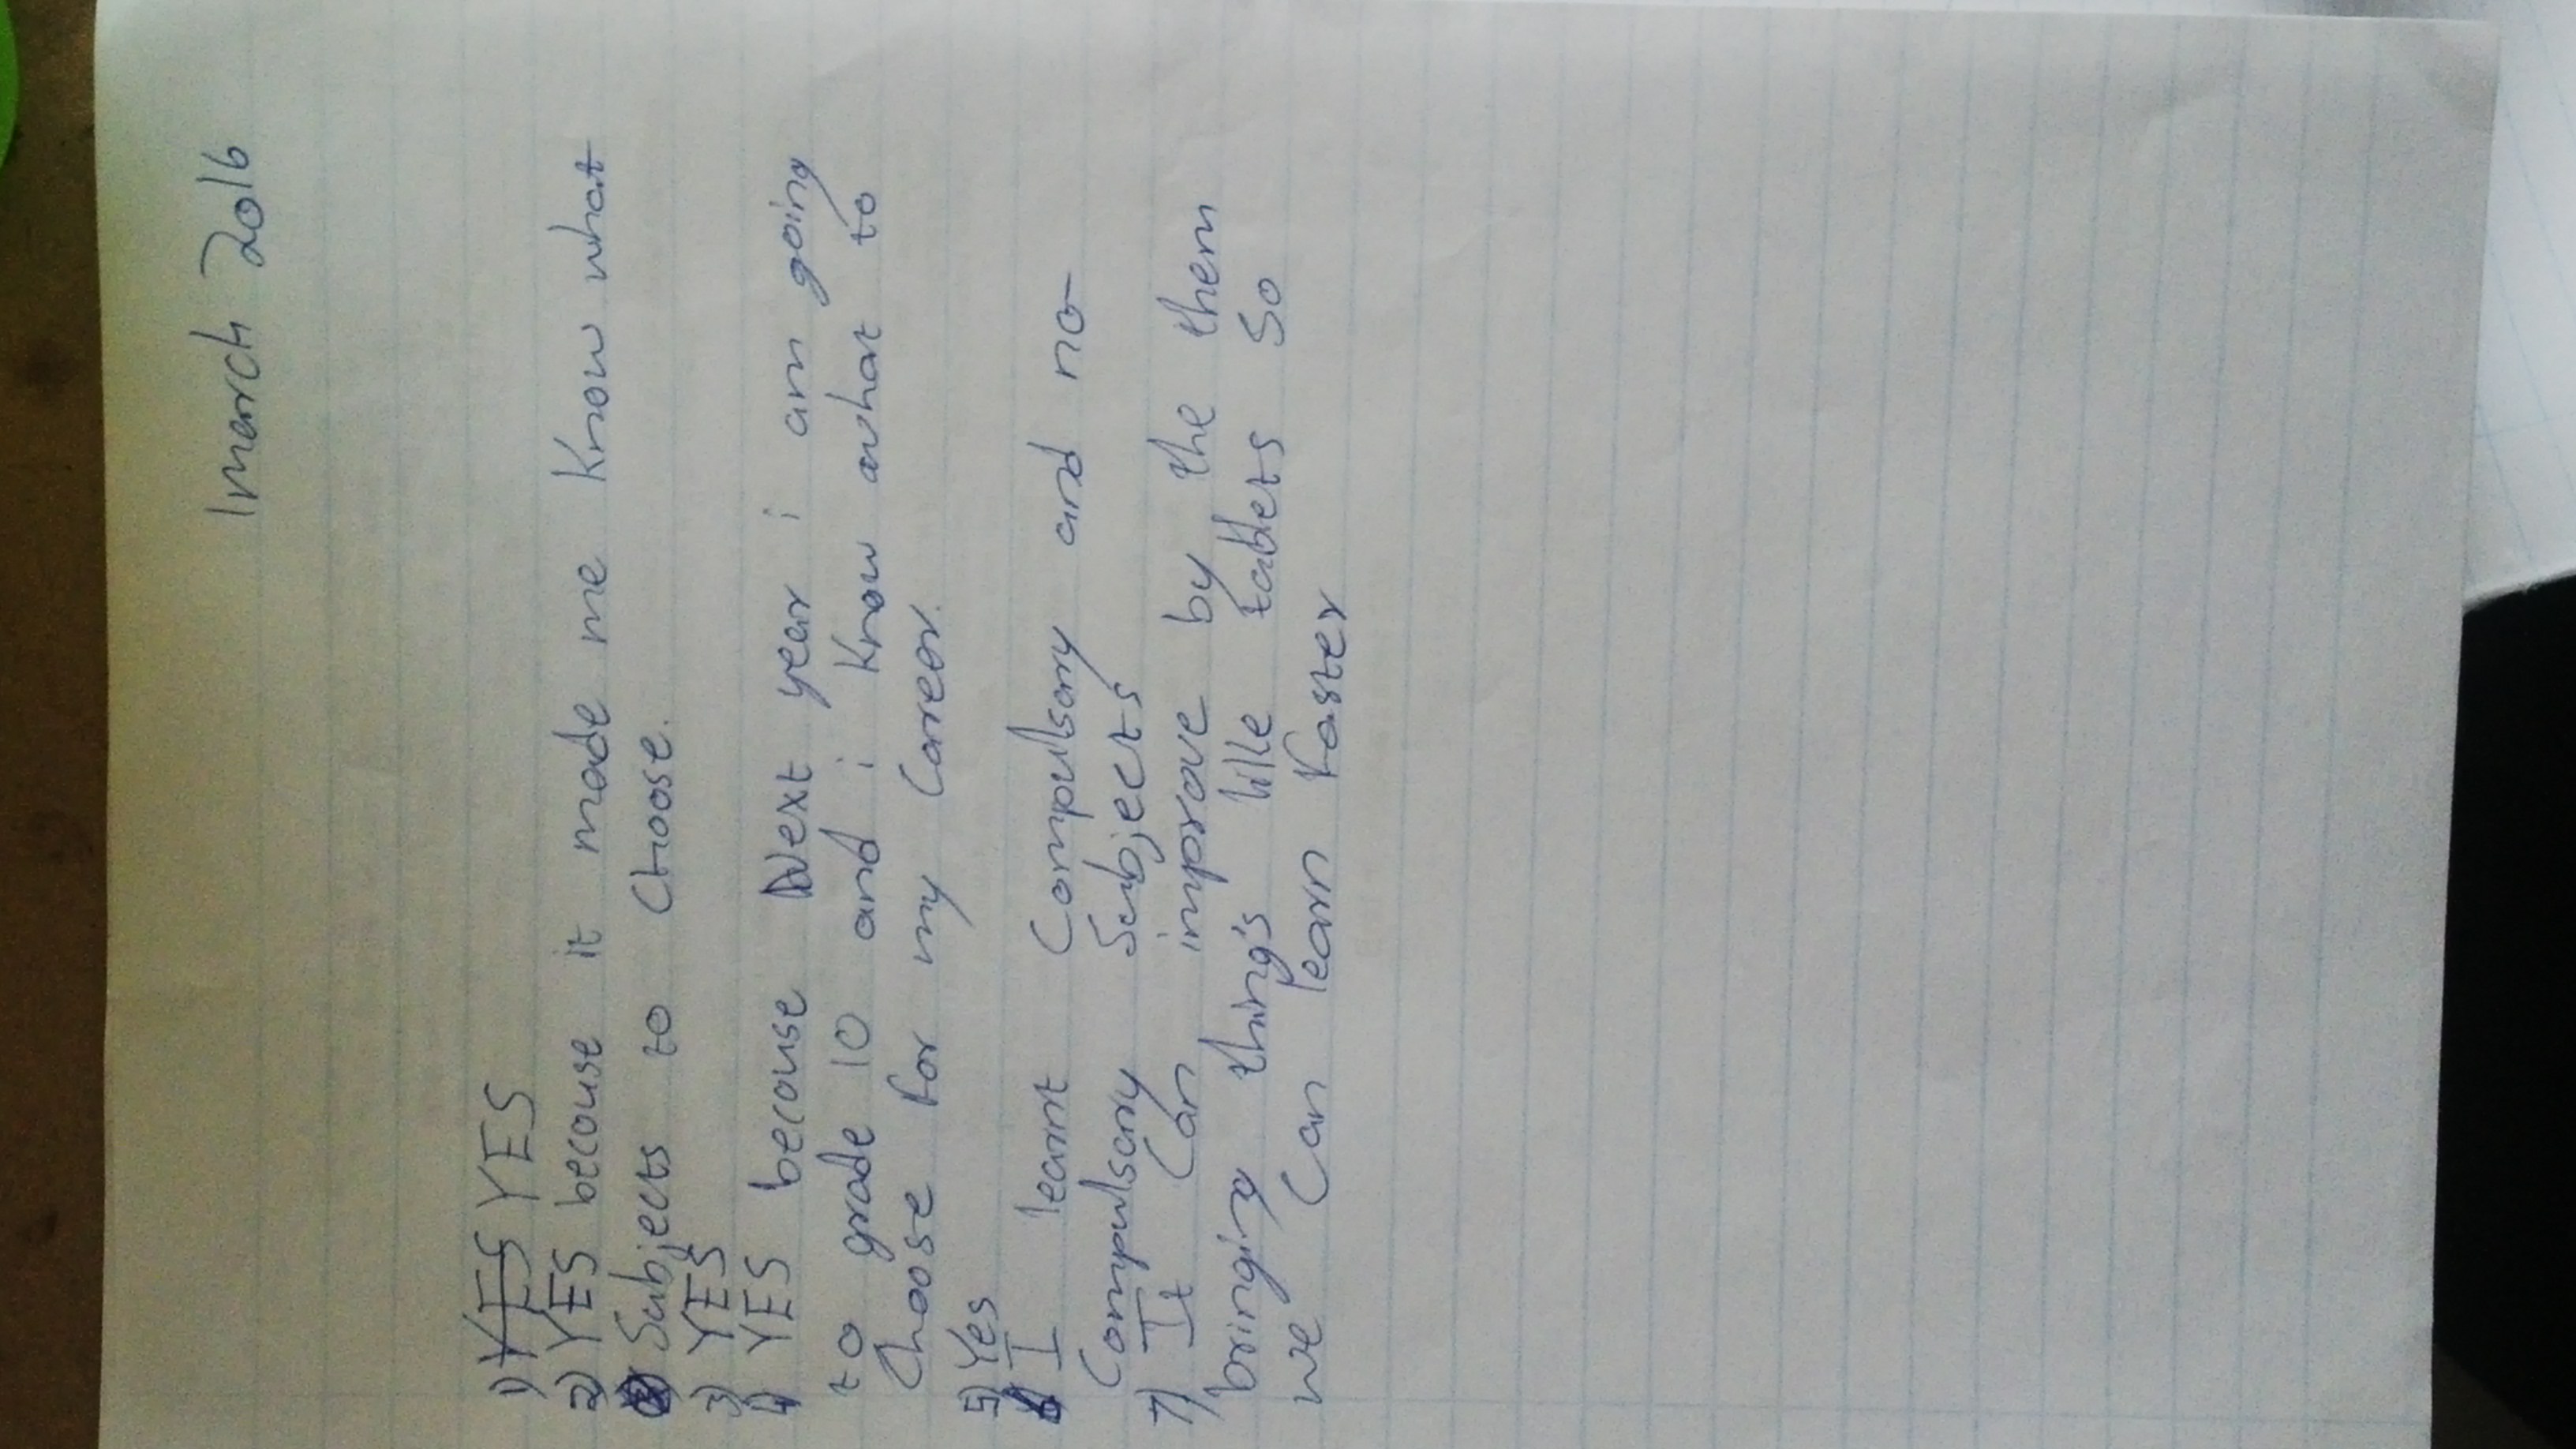 1 march 2016
1) YES YES
2) YES because it made me know what
Subjects to Choose.
3) YES
4) YES because Next year i am going
to grade 10 and i know what to
Choose for my Career.
5) Yes
6) I learnt Compulsory and no
Compulsory Subjects
7) It Can improve by the them
bringing thing's like tablets So
we Can learn faster